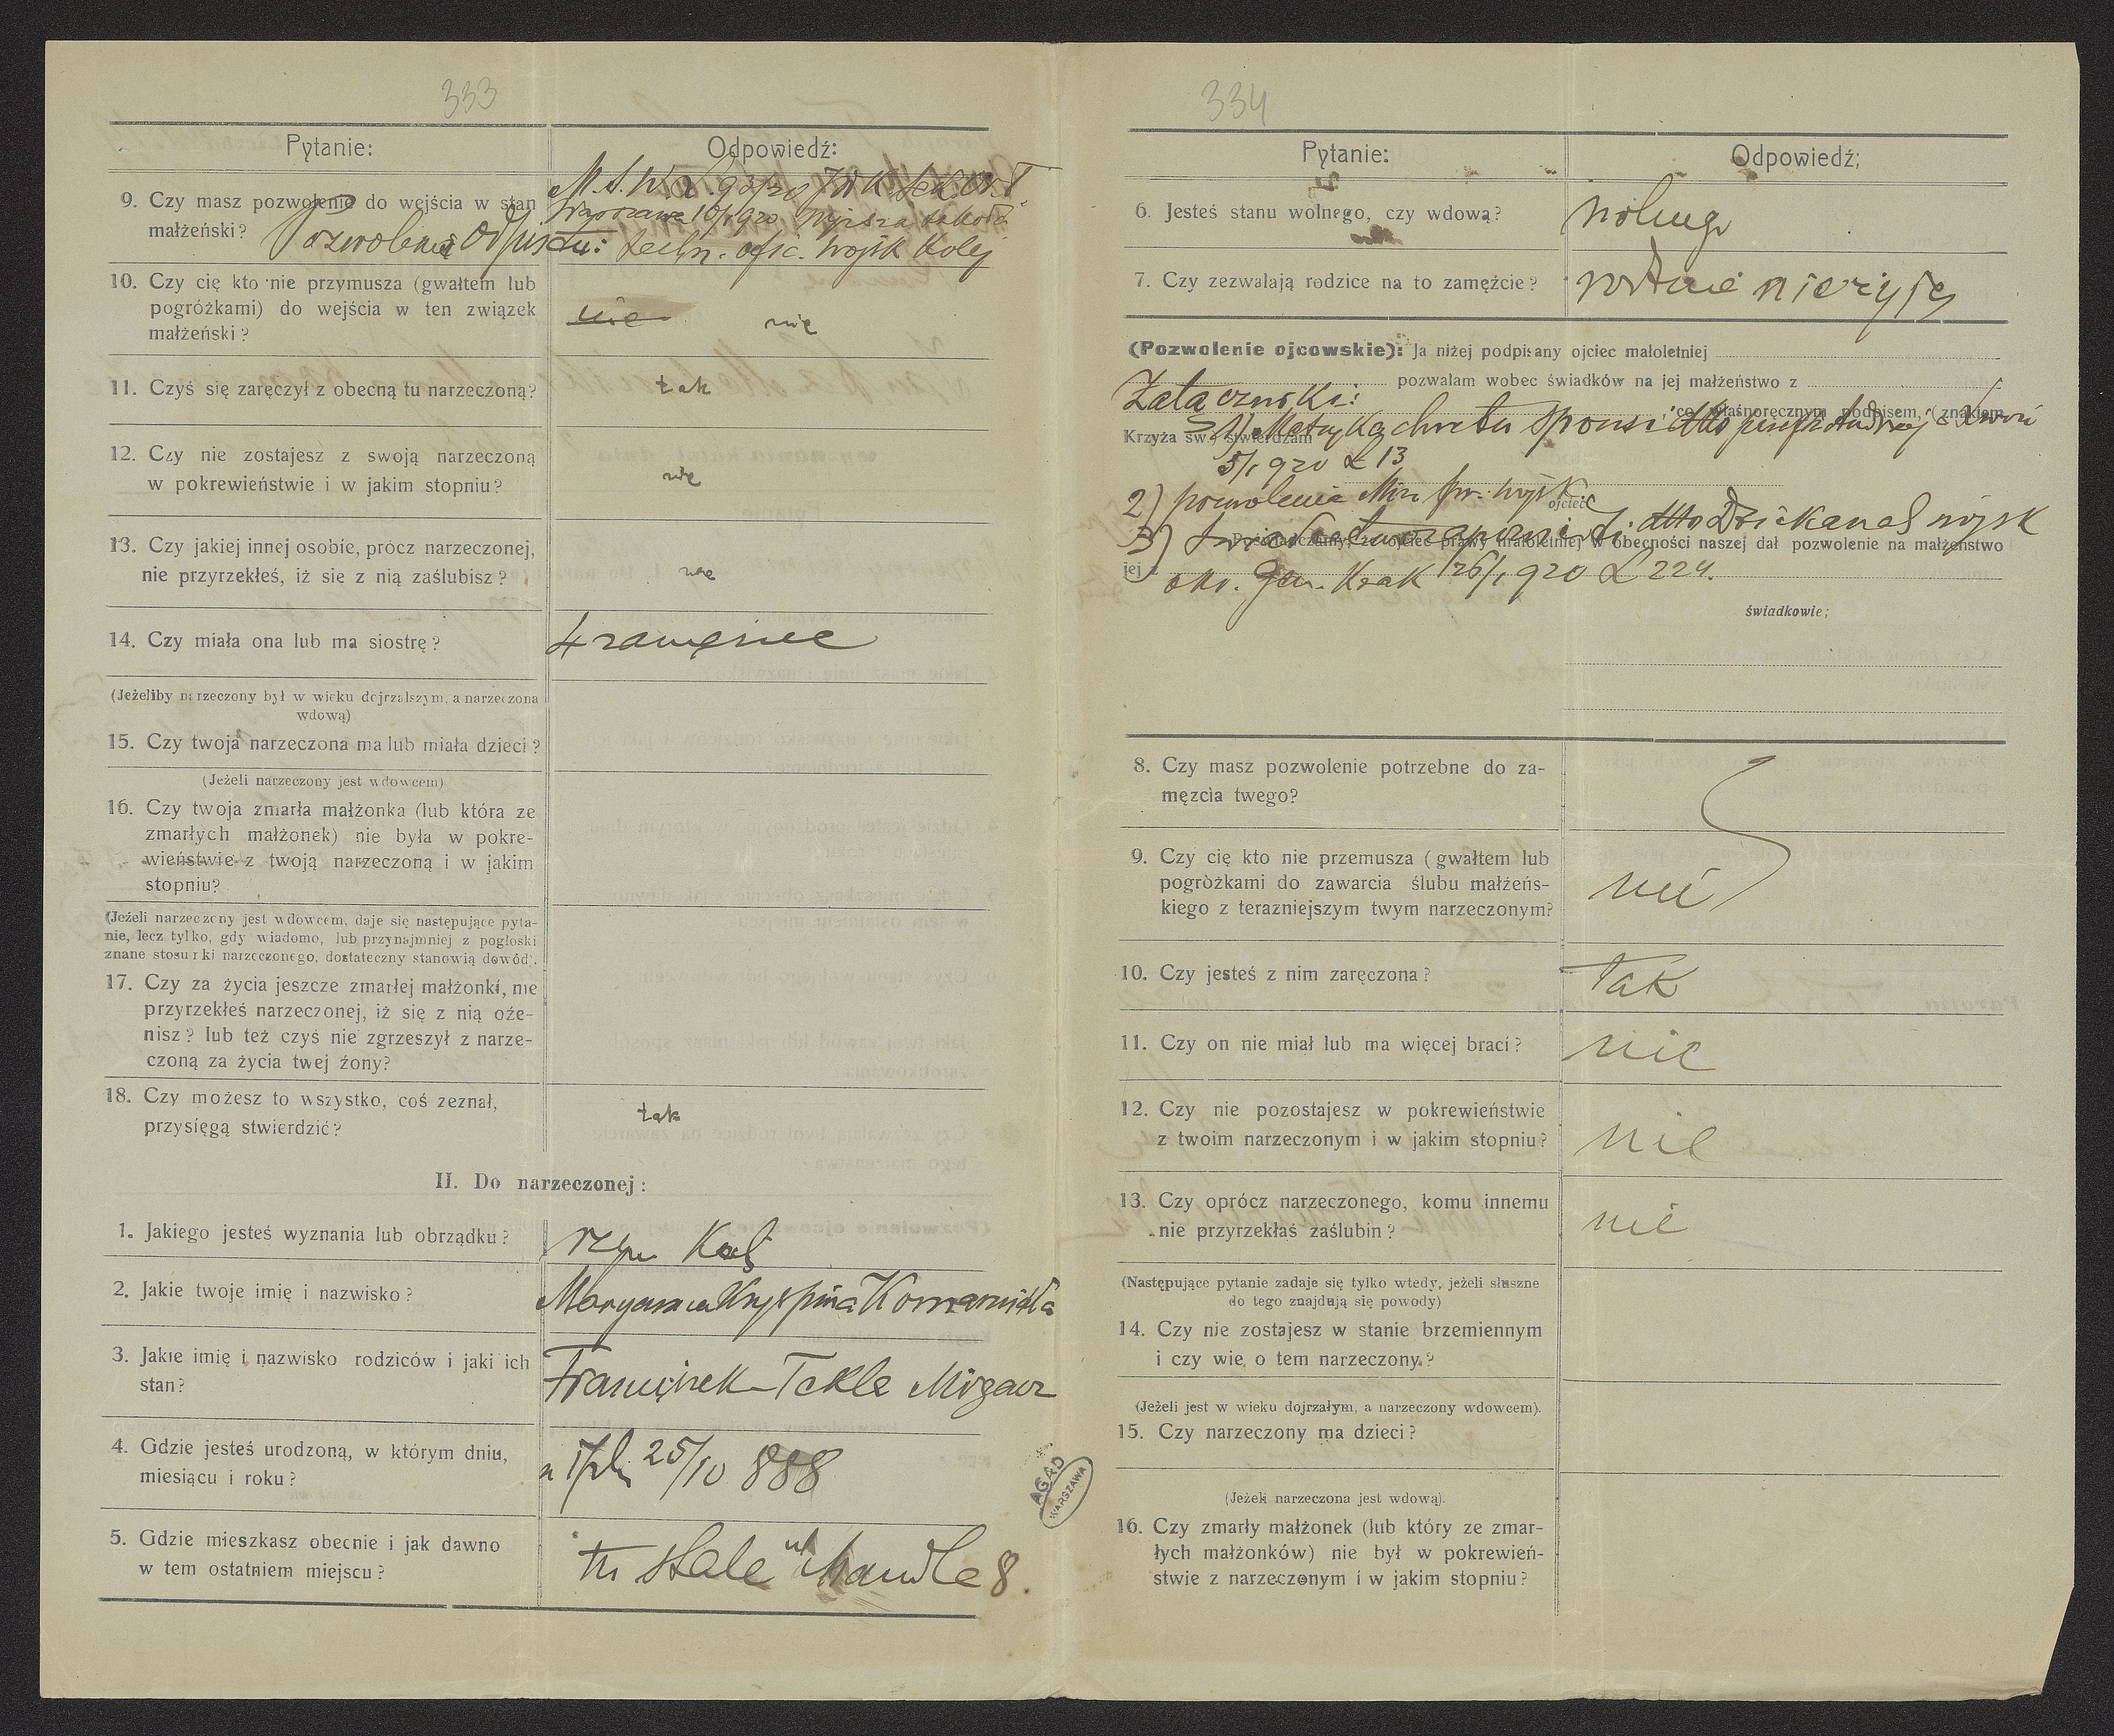 333
Pytanie:
Odpowiedź:
9. Czy masz pozwolenie do wejścia w stan
małżeński?
M. S. W.
Warszawa 10/1 920 wyższa szkoła
Pozwolenie Odpis
techn. ofic. wojsk Kolej
10. Czy cię kto nie przymusza (gwałtem lub
pogróżkami) do wejścia w ten związek
małżeński?
nie nie
11. Czyś się zaręczył z obecną tu narzeczoną?
tak
12. Czy nie zostajesz z swoją narzeczoną
w pokrewieństwie i w jakim stopniu?
nie
13. Czy jakiej innej osobie, prócz narzeczonej,
nie przyrzekłeś, iż sie z nią zaślubisz?
nie
14. Czy miała ona lub ma siostrę?
4 zamężne
(Jeżeliby narzeczony był w wieku dojrzalszym, a narzeczona
wdową)
15. Czy twoja narzeczona ma lub miała dzieci?
(Jeżeli narzeczony jest wdowcem)
16. Czy twoja zmarła małżonka (lub która ze
zmarłych małżonek) nie była w pokre-
wieństwie z twoją narzeczoną i w jakim
stopniu?
(Jeżeli narzeczony jest wdowcem, daje się następujące pyta-
nie, lecz tylko, gdy wiadomo, lub przynajmniej z pogłoski
znane stosunki narzeczonego, dostateczny stanowią dowód).
17. Czy za życia jeszcze zmarłej małżonki, nie
przyrzekłeś narzeczonej, iż się z nią oże-
nisz? lub też czyś nie zgrzeszył z narze-
czoną za życia twej żony?
18. Czy możesz to wszystko, coś zeznał,
przysięgą stwierdzić?
tak
II. Do narzeczonej:
1. Jakiego jesteś wyznania lub obrządku?
rzym Kat
2. Jakie twoje imię i nazwisko?
Maryanna Kryspina Komarnicka
3. Jakie imię i nazwisko rodziców i jaki ich
stan?
Franciszek - Tekla
4. Gdzie jesteś urodzoną, w którym dniu,
miesiącu i roku?
25/10 888
5. Gdzie mieszkasz obecnie i jak dawno
w tem ostatniem miejscu?
tu stale ul 8.
AGAD
WARSZAWA
334
Pytanie:
Odpowiedź;
6. Jesteś stanu wolnego, czy wdową?
wolnego
7. Czy zezwalają rodzice na to zamęźcie?
nie żyją
(Pozwolenie ojcowskie): Ja niżej podpisany ojciec małoletniej
pozwalam wobec świadków na jej małżeństwo z
Załączniki:
, co własnoręcznym podpisem, (znakiem
Krzyża św.) stwierdzam
1) Metryka chrztu sponsi
5/1 920 L 13
2) pozwolenie Min spr. wojsk
ojciec
3) Dziekanat wojsk
Poświadczamy, że ojciec prawy małoletniej w obecności naszej dał pozwolenie na małżeństwo
jej z
okr. Gen. Krak 26/1 920 L 224.
świadkowie;
8. Czy masz pozwolenie potrzebne do za-
męzcia twego?
9. Czy cię kto nie przemusza (gwałtem lub
pogròżkami do zawarcia ślubu małżeńs-
kiego z terazniejszym twym narzeczonym?
nie
10. Czy jesteś z nim zaręczona?
Tak
11. Czy on nie miał lub ma więcej braci?
nie
12. Czy nie pozostajesz w pokrewieństwie
z twoim narzeczonym i w jakim stopniu?
nie
13. Czy oprócz narzeczonego, komu innemu
nie przyrzekłaś zaślubin?
nie
(Następujące pytanie zadaje się tylko wtedy, jeżeli słuszne
do tego znajdują się powody)
14. Czy nie zostajesz w stanie brzemiennym
i czy wie o tem narzeczony?
(Jeżeli jest w wieku dojrzałym, a narzeczony wdowcem).
15. Czy narzeczony ma dzieci?
(Jeżeli narzeczona jest wdową).
16. Czy zmarły małżonek (lub który ze zmar-
łych małżonków) nie był w pokrewień-
stwie z narzeczonym i w jakim stopniu?